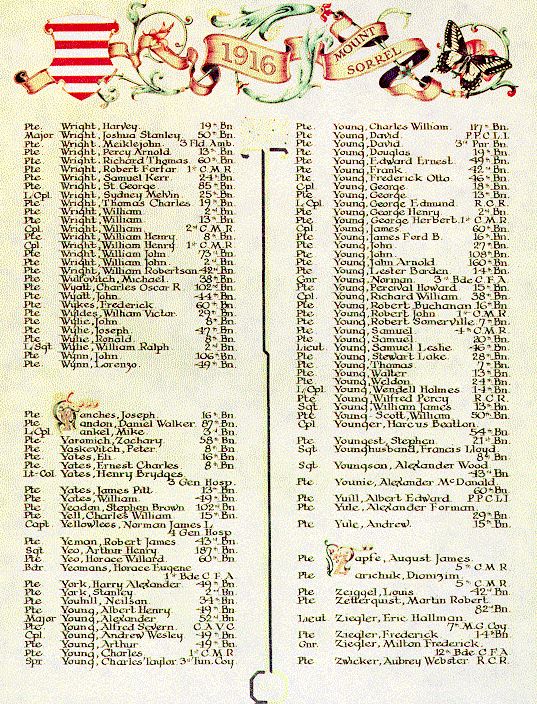 1916
MOUNT
SORREL
Pte. Wright, Harvey. 19th Bn.
Major Wright, Joshua Stanley 50th Bn.
Pte. Wright, Meiklejohn. 3 Fld. Amb.
Pte. Wright, Percy Arnold 13th Bn.
Pte. Wright, Richard Thomas 60th Bn.
Pte. Wright, Robert Forfar 1st C.M.R.
Pte. Wright, Samuel Kerr 24th Bn.
Pte. Wright, St. George 85th Bn.
L/Cpl. Wright, Sydney Melvin 25th Bn.
Pte. Wright, Thomas Charles 19th Bn.
Pte. Wright, William 2nd Bn.
Pte. Wright, William 13th Bn.
Cpl. Wright, William 2nd C.M.R.
Pte. Wright, William Henry 8th Bn.
Cpl. Wright, William Henry 1st C.M.R.
Pte. Wright, William John 73rd Bn.
Pte. Wright, William John 2nd Bn.
Pte. Wright, William Robertson 42nd Bn.
Pte. Wulfovitch, Michael. 38th Bn.
Pte. Wyatt, Charles Oscar R. 102nd Bn.
Pte. Wyatt, John. 44th Bn.
Pte. Wykes, Frederick 60th Bn.
Pte. Wyldes, William Victor 29th Bn.
Pte. Wylie, John 8th Bn.
Pte. Wylie, Joseph 47th Bn.
Pte. Wylie, Ronald 8th Bn.
L/Sgt. Wylie, William Ralph 2nd Bn.
Pte. Wynn, John 106th Bn.
Pte. Wynn, Lorenzo. 49th Bn.
Pte Yanches, Joseph 16th Bn.
Pte Yandon, Daniel Walker 87th Bn.
L/Cpl. Yankel, Mike 3rd Bn.
Pte Yaromich, Zachary 58th Bn.
Pte Yaskevitch, Peter 8th Bn.
Pte Yates, Eli 16th Bn.
Pte Yates, Ernest Charles 8th Bn.
Lt-Col. Yates, Henry Brydges
3 Gen Hosp.
Pte Yates, James Pitt 13th Bn.
Pte Yates, William 49th Bn.
Pte Yeadon, Stephen Brown 102nd Bn.
Pte Yell, Charles William 15th Bn.
Capt Yellowlees, Norman James L
4 Gen Hosp
Pte Yeman, Robert James 43rd Bn.
Sgt Yeo, Arthur Henry 187th Bn.
Pte Yeo, Horace Willard 60th Bn.
Bdr Yeomans, Horace Eugene
1st Bde C F A
Pte York, Harry Alexander 49th Bn.
Pte York, Stanley 2nd Bn.
Pte Youhill, Neilson 34th Bn.
Pte Young, Albert Henry 49th Bn.
Major Young, Alexander 52nd Bn.
Pte Young, Alfred Severn C.A.V.C.
Cpl Young, Andrew Wesley 49th Bn.
Pte Young, Arthur 49th Bn.
Pte Young, Charles 1st C M R
Spr Young, Charles Taylor 3rd Tun. Coy.
Pte Young, Charles William. 117th Bn.
Pte Young, David. P.P.C L I
Pte Young, David. 3rd Pnr Bn.
Pte Young, Douglas 19th Bn.
Pte Young, Edward Ernest 49th Bn.
Pte Young, Frank 42nd Bn.
Pte Young, Frederick Otto 46th Bn.
Cpl Young, George 18th Bn.
Pte Young, George 13th Bn.
L/Cpl Young, George Edmund R.C.R.
Pte Young, George Henry 2nd Bn.
Pte Young, George Herbert. 1st C M R
Cpl Young, James 60th Bn.
Pte Young, James Ford B. 16th Bn.
Pte Young, John 27th Bn.
Pte Young, John 108th Bn.
Pte Young, John Arnold 160th Bn.
Pte Young, Lester Barden 14th Bn.
Gnr Young, Norman. 3rd Bde C F A
Pte Young, Perceval Howard 15th Bn.
Cpl Young, Richard William 38th Bn.
Pte Young, Robert Buchanan 16th Bn.
Pte Young, Robert John 1st C M R
Pte Young, Robert Somerville 7th Bn.
Pte Young, Samuel 4th C M R
Pte Young, Samuel 20th Bn.
Lieut Young, Samuel Leslie 46th Bn.
Pte Young, Stewart Lake 28th Bn.
Pte Young, Thomas 7th Bn.
Pte Young, Walter 13th Bn.
Pte Young, Weldon 24th Bn.
L/Cpl Young, Wendell Holmes 14th Bn.
Pte Young, Wilfred Percy R C R.
Sgt Young, William James 13th Bn.
Pte Young-Scott, William 50th Bn.
Cpl Younger, Harcus Beatton
54th Bn.
Pte Youngest, Stephen 21st Bn.
Sgt Younghusband, Francis Lloyd
8th Bn.
Sgt Youngson, Alexander Wood
43rd Bn
Pte Younie, Alexander McDonald.
60th Bn.
Pte Yuill, Albert Edward P P C L I
Pte Yule, Alexander Forman
29th Bn.
Pte Yule, Andrew. 15th Bn.
Pte Zapfe, August James
5th C M R
Pte Zarichuk, Dionizim
5th C M R.
Pte Zeiggel, Louis 42nd Bn
Pte Zetterquist, Martin Robert
82nd Bn.
Lieut Ziegler, Eric Hallman
7th M.G Coy
Pte Ziegler, Frederick 14th Bn
Gnr. Ziegler, Milton Frederick.
12th Bde C F A
Pte Zwicker, Aubrey Webster R C R.